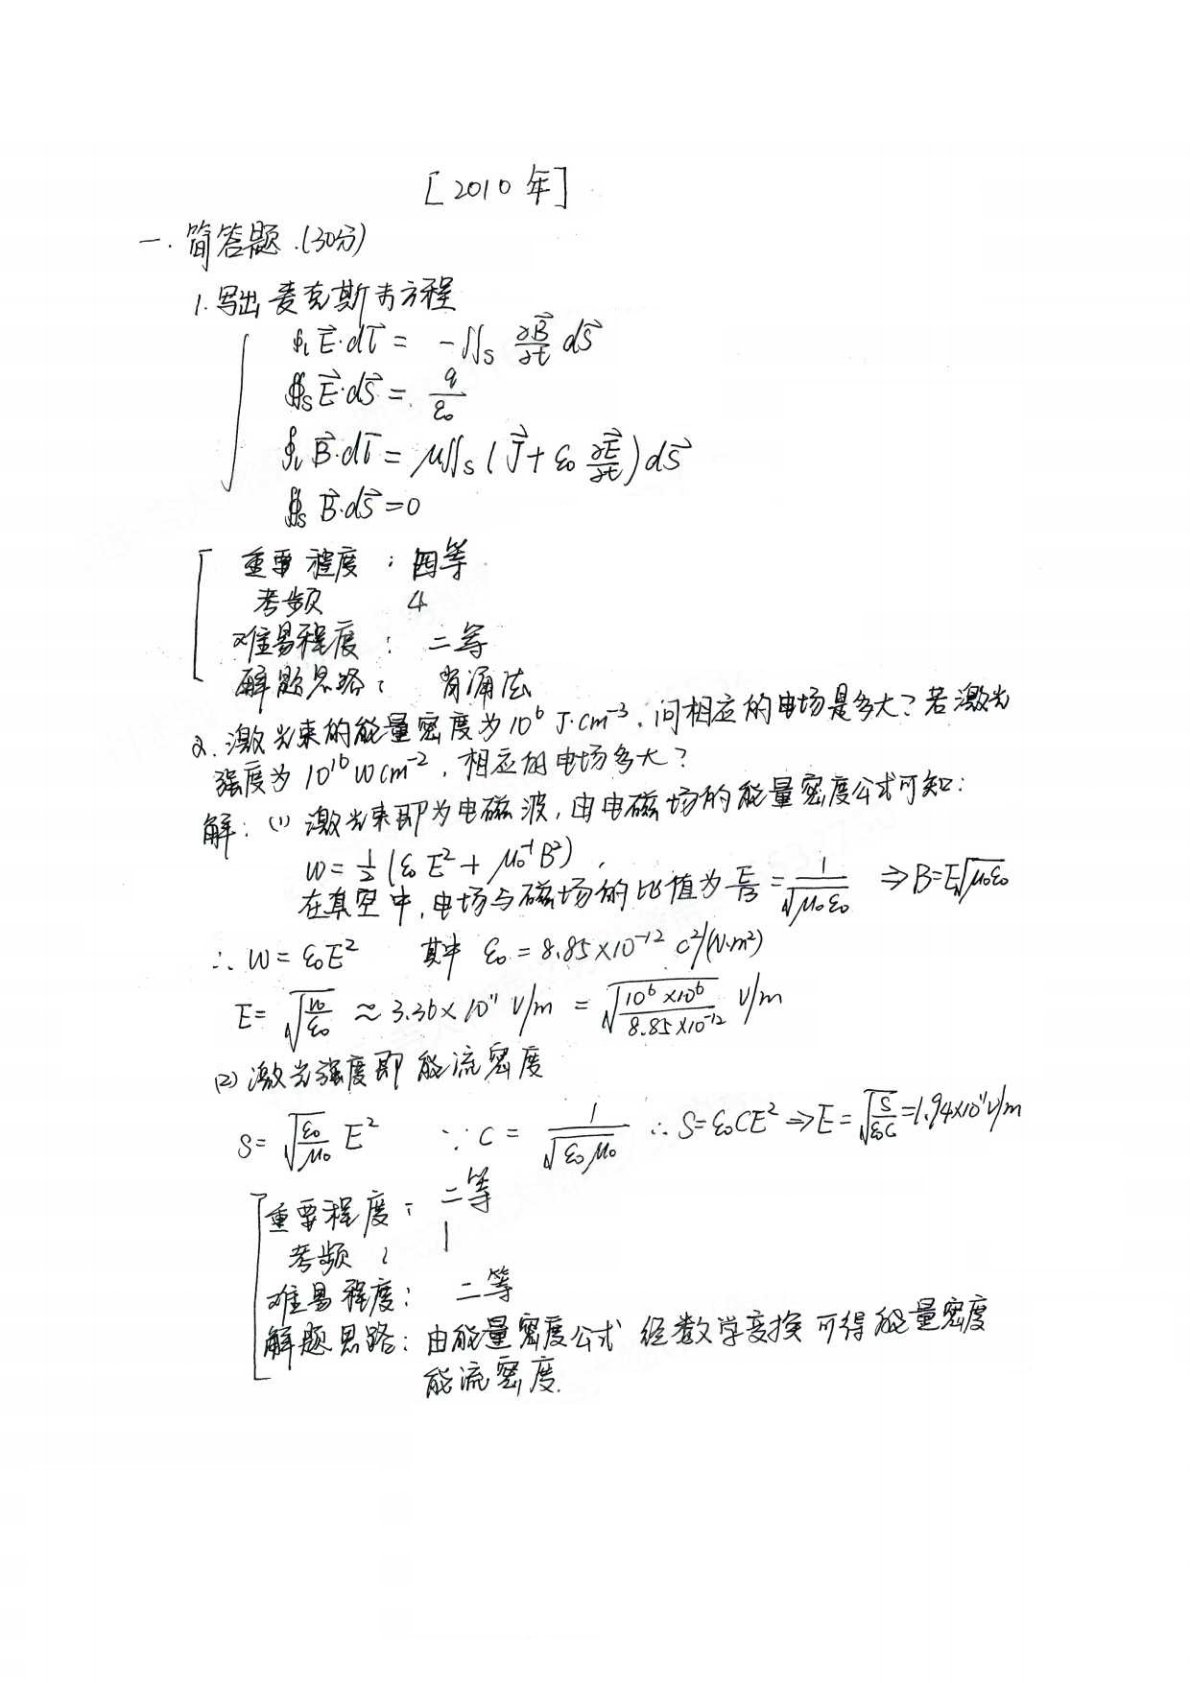 [2010年]
一.简答题.(30分)
1.写出麦克斯韦方程
∮l E⃗·dl⃗ = -∬s ∂B⃗/∂t ds⃗
∯s E⃗·ds⃗ = q/ε₀
∮l B⃗·dl⃗ = μ∬s (J⃗+ε₀ ∂E⃗/∂t) ds⃗
∯s B⃗·ds⃗=0
重要程度: 四等
考频 4
难易程度: 二等
解题思路: 背诵法
2.激光束的能量密度为10⁶ J·cm⁻³,问相应的电场是多大?若激光
强度为10¹⁶ W cm⁻²,相应的电场多大?
解:(1)激光束即为电磁波,由电磁场的能量密度公式可知:
w=1/2(ε₀E²+μ₀⁻¹B²),
在真空中,电场与磁场的比值为E/B=1/√(μ₀ε₀) ⇒B=E√(μ₀ε₀)
∴ w=ε₀E² 其中 ε₀=8.85×10⁻¹² C²/(N·m²)
E=√(w/ε₀) ≈3.36×10¹¹ V/m =√(10⁶×10⁶/8.85×10⁻¹²) V/m
(2)激光强度即能流密度
S=√(ε₀/μ₀) E² ∵C=1/√(ε₀μ₀) ∴S=ε₀CE²⇒E=√(S/ε₀C)=1.94×10¹¹V/m
重要程度: 二等
考频: 1
难易程度: 二等
解题思路:由能量密度公式 经数学变换可得能量密度
能流密度.